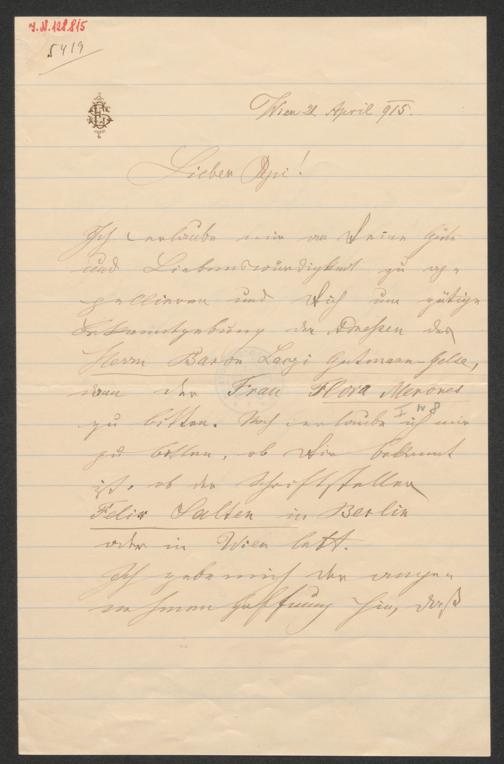 J.N. 128.815
5419
Wien 21. April 915.
Lieber Api!
Ich erlaube mir an Deine Güte
und Liebenswürdigkeit zu ap-
pellieren und Dich um gütige
Bekanntgebung der Adressen des
Herrn Baron Laczi Gutmann-Gelse,
dann der Frau Flora Merores
I W 8
zu bitten. Noch erlaube ich mir
zu bitten, ob Dir bekannt
ist, ob der Schriftsteller
Felix Salten in Berlin
oder in Wien lebt.
Ich gebe mich der ange-
nehmen Hoffnung hin, daß